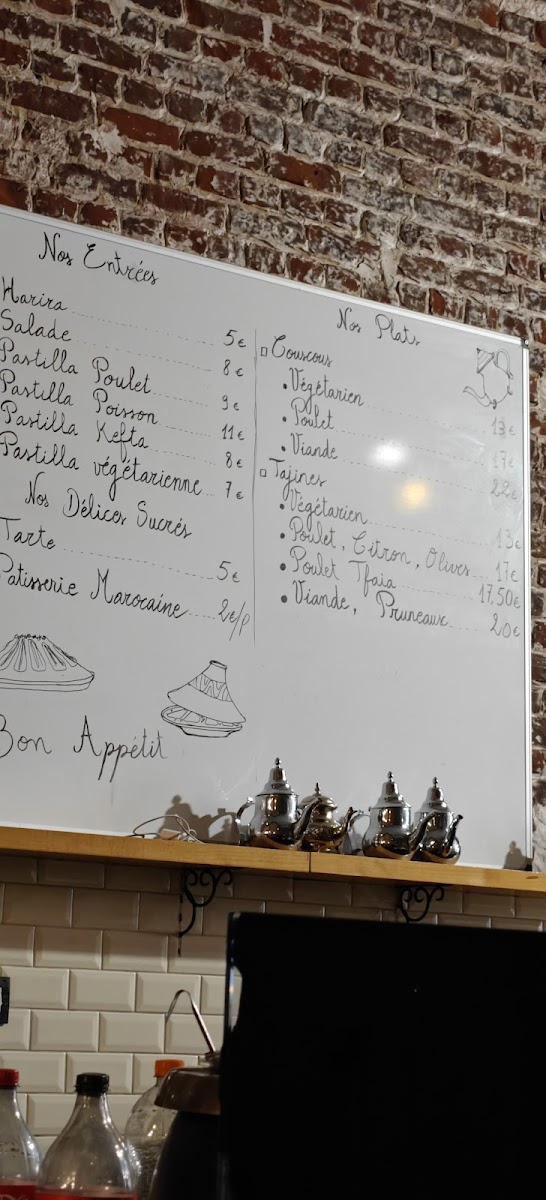 Nos Entrées
Harira 5€
Salade 8€
Pastilla Poulet 9€
Pastilla Poisson 11€
Pastilla Kefta 8€
Pastilla végétarienne 7€
Nos Délices Sucrés
Tarte 5€
Patisserie Marocaine 2€/p
Bon Appétit
Nos Plats
Couscous
Végétarien 13€
Poulet 17€
Viande 22€
Tajines
Végétarien 13€
Poulet, Citron, Olives 17€
Poulet Tfaia 17,50€
Viande, Pruneaux 20€